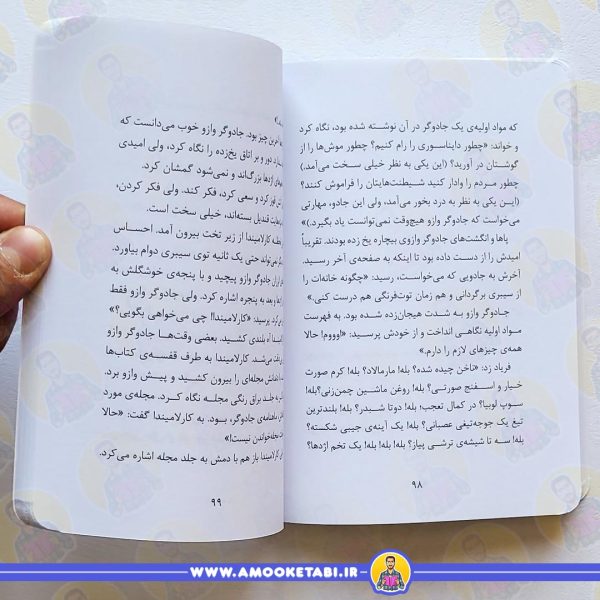 که مواد اولیه‌ی یک جادوگر در آن نوشته شده بود، نگاه کرد
و خواند: «چطور دایناسوری را رام کنیم؟ چطور موش‌ها را از
گوشتان در آورید؟ (این یکی به نظر خیلی سخت می‌آمد.)
چطور مردم را وادار کنید شیطنت‌هایتان را فراموش کنند؟
(این یکی به نظر به درد بخور می‌آمد، ولی این جادو، مهارتی
می‌خواست که جادوگر وازو هیچ‌وقت نمی‌توانست یاد بگیرد.)»
پاها و انگشت‌های جادوگر وازوی بیچاره یخ زده بودند. تقریباً
امیدش را از دست داده بود تا اینکه به صفحه‌ی آخر رسید.
آخرش به جادویی که می‌خواست، رسید: «چگونه خانه‌ات را
از سیبری برگردانی و هم زمان توت‌فرنگی هم درست کنی.»
جادوگر وازو به شدت هیجان‌زده شده بود. به فهرست
مواد اولیه نگاهی انداخت و از خودش پرسید: «اوووم! حالا
همه‌ی چیزهای لازم را دارم.»
فریاد زد: «ناخن چیده شده؟ بله! مارمالاد؟ بله! کرم صورت
خیار و اسفنج صورتی؟ بله! روغن ماشین چمن‌زنی؟ بله!
سوپ لوبیا؟ در کمال تعجب؛ بله! دوتا شبدر؟ بله! بلندترین
تیغ یک جوجه‌تیغی عصبانی؟ بله! یک آینه‌ی جیبی شکسته؟
بله! سه تا شیشه‌ی ترشی پیاز؟ بله! بله! بله! یک تخم اژدها؟
۹۸
آخرین چیز بود. جادوگر وازو خوب می‌دانست که
دور و بر اتاق یخ‌زده را نگاه کرد، ولی امیدی
اژدها بزرگ‌اند و نمی‌شود گمشان کرد.
کرد و سعی کرد، فکر کند. ولی فکر کردن،
قندیل بسته‌اند، خیلی سخت است.
کارلامیندا از زیر تخت بیرون آمد. احساس
حتی یک ثانیه توی سیبری دوام بیاورد.
جادوگر وازو پیچید و با پنجه‌ی خوشگلش به
بعد به پنجره اشاره کرد. ولی جادوگر وازو فقط
پرسید: «کارلامیندا! چی می‌خواهی بگویی؟»
آه بلندی کشید. بعضی وقت‌ها جادوگر وازو
می‌شد. کارلامیندا به طرف قفسه‌ی کتاب‌ها
مجله‌ای را بیرون کشید و پیش وازو برد.
به جلد براق رنگی مجله نگاه کرد. مجله‌ی مورد
ماهنامه‌ی جادوگر، بود. به کارلامیندا گفت: «حالا
مجله‌خواندن نیست!»
کارلامیندا باز هم با دمش به جلد مجله اشاره می‌کرد.
۹۹
WWW.AMOOKETABI.IR